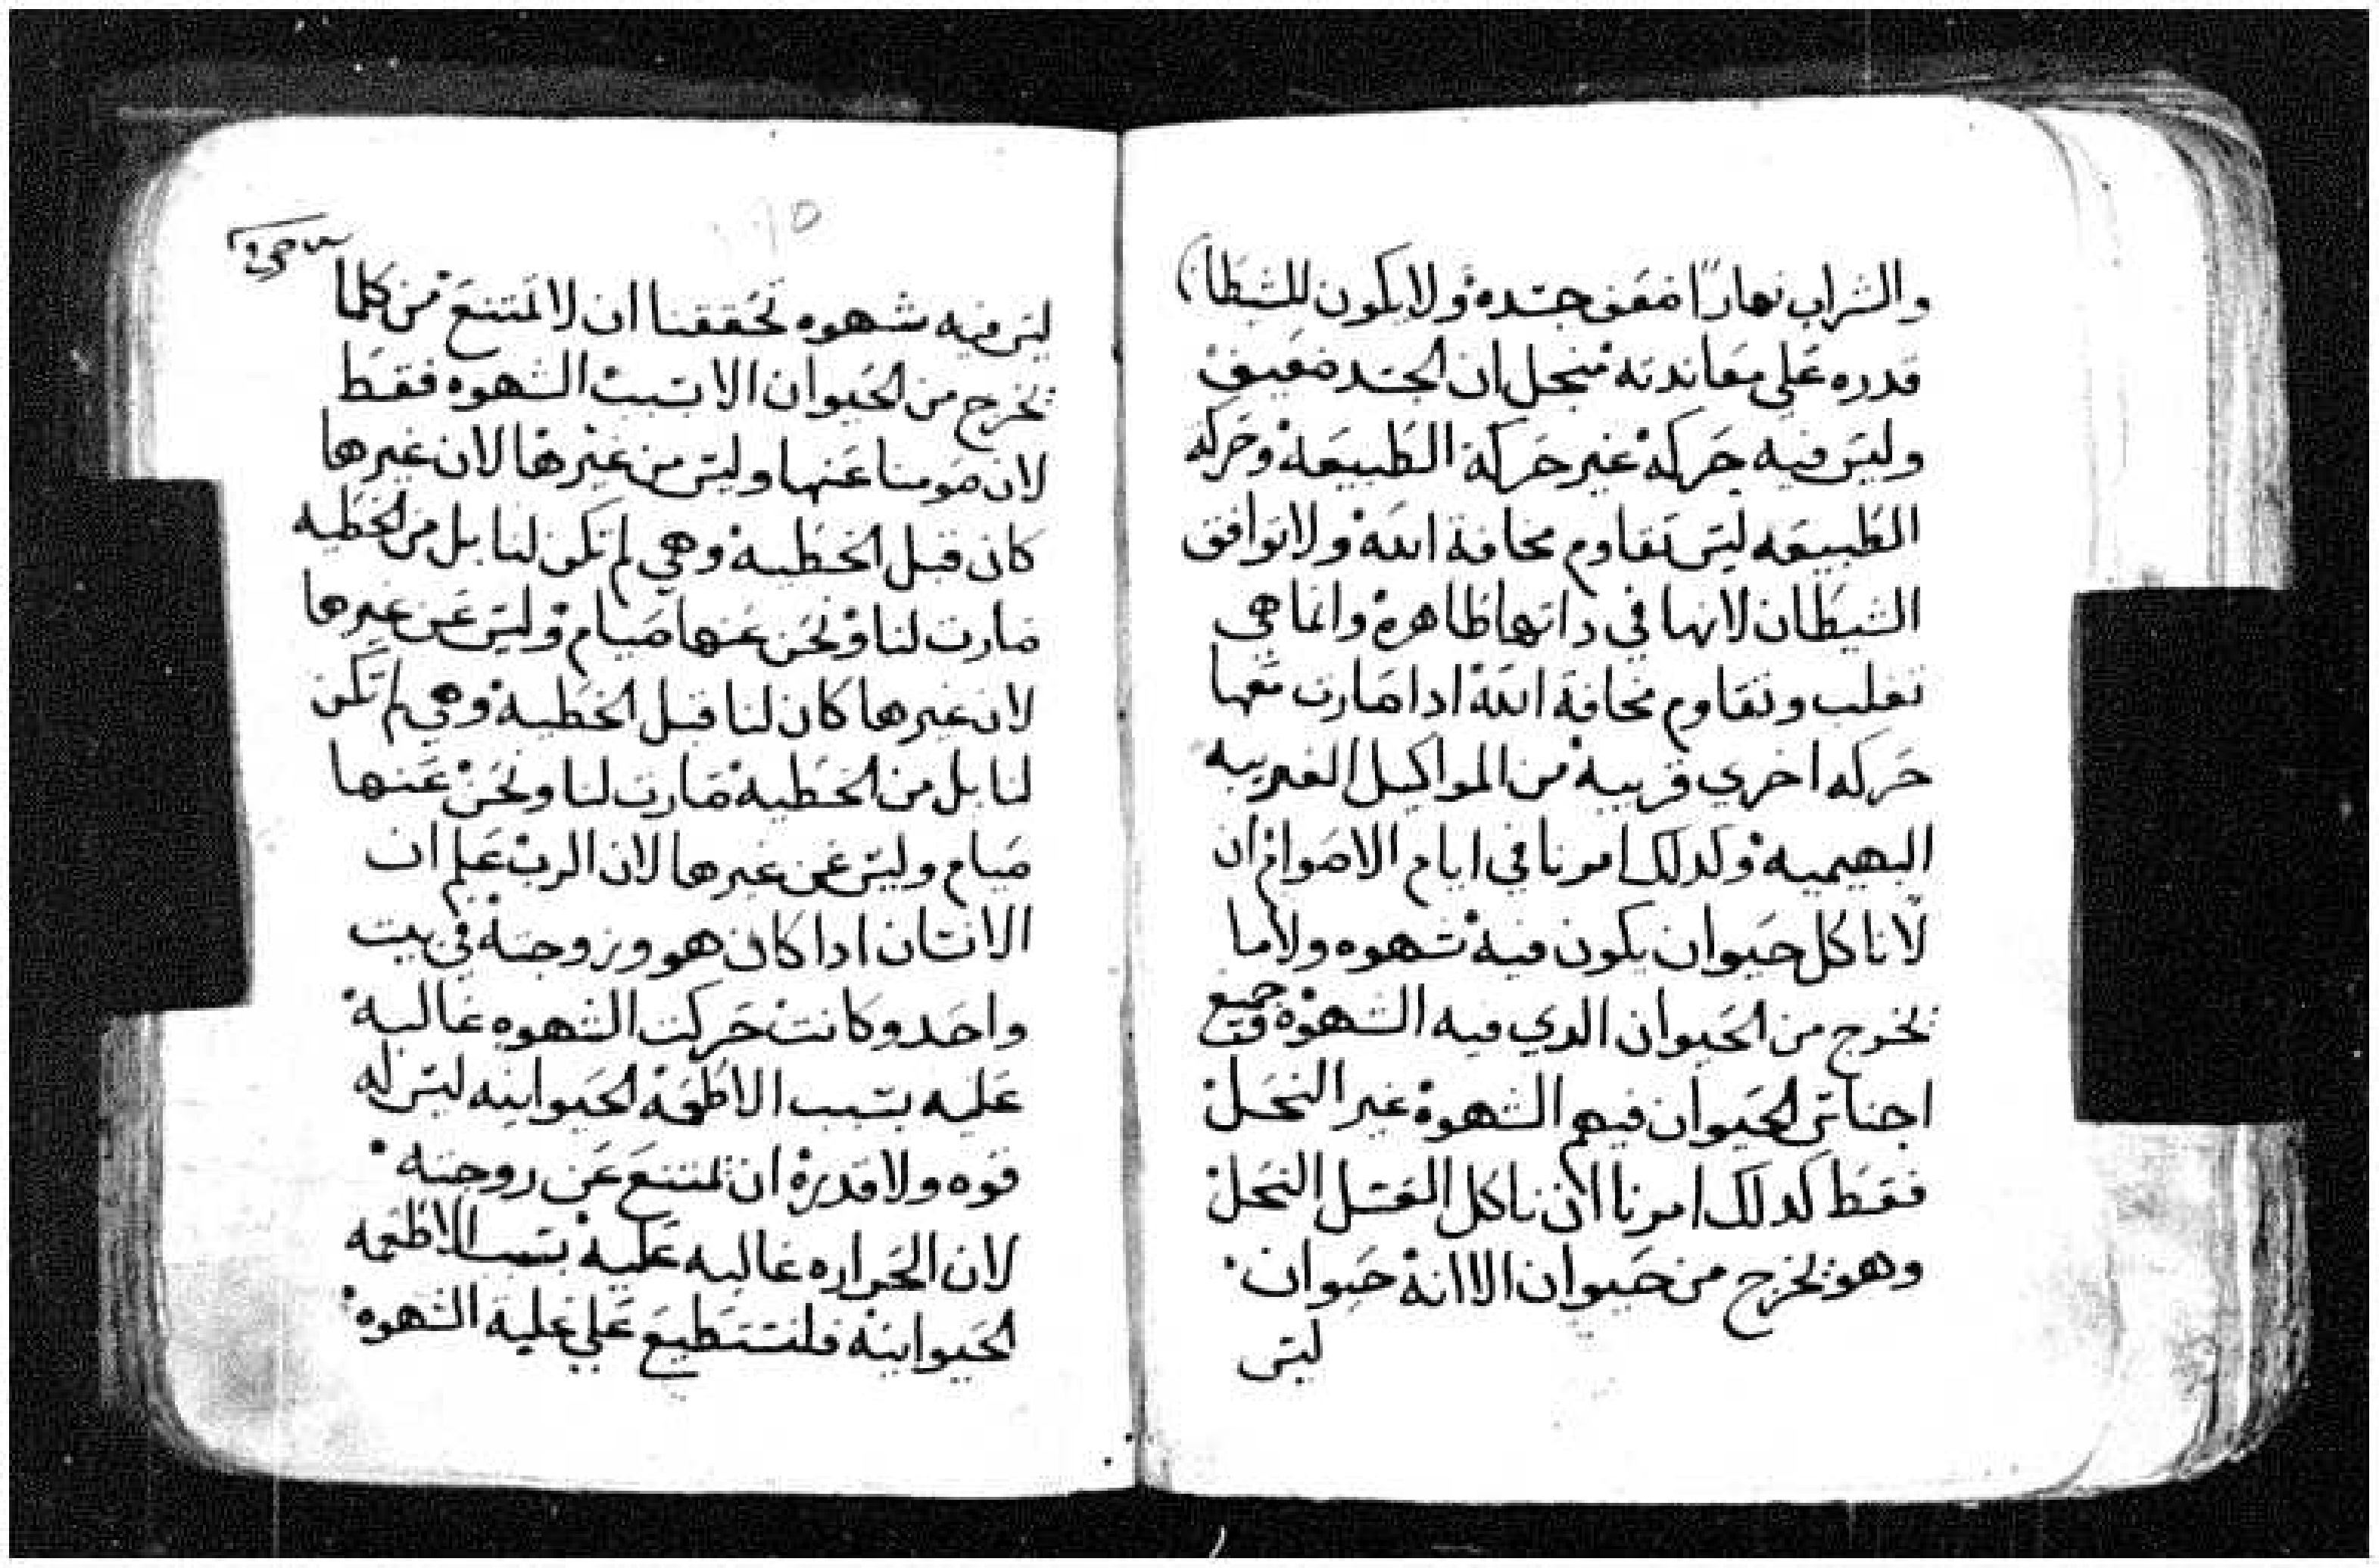 والشراب نهاراً ضعف جسده ولا يكون للشيطان
قدره على معاندته منجل ان الجسد ضعيف
وليس فيه حركة غير حركة الطبيعة وحركة
الطبيعه ليس تقاوم مخافة الله ولا توافق
الشيطان لانها في داتها طاهرة وانما هي
تغلب وتقاوم مخافة الله ادا صارت معها
حركه اخري قريبة من المواكيل الغريبه
البهيميه ولدلك امرنا في ايام الاصوام ان
لا ناكل حيوان يكون فيه شهوه ولا ما
يخرج من الحيوان الدي فيه الشهوة وجميع
اجناس الحيوان فيهم الشهوة غير النحل
فقط لدلك امرنا الان ناكل العسل النحل
وهو يخرج من حيوان الا انه حيوان
ليس
ليس فيه شهوه تحققنا ان لا نمتنع من كلما
يخرج من الحيوان الا بسبب الشهوه فقط
لان صومنا عنها وليس من غيرها لان غيرها
كان قبل الخطية وهي لم تكن لنا بل من الخطيه
صارت لنا ونحن عنها صيام وليس عن غيرها
لان غيرها كان لنا قبل الخطية وهي لم تكن
لنا بل من الخطية صارت لنا ونحن عنها
صيام وليس عن غيرها لان الرب علم ان
الانسان ادا كان هو وزوجته في بيت
واحد وكانت حركت الشهوه غالبة
عليه بسبب الاطعمة الحيوانيه ليس له
قوه ولا قدرة ان يمتنع عن زوجته
لان الحراره غالبه عليه بسبب الاطعمه
الحيوانية فلن يستطيع علي غلبة الشهوه